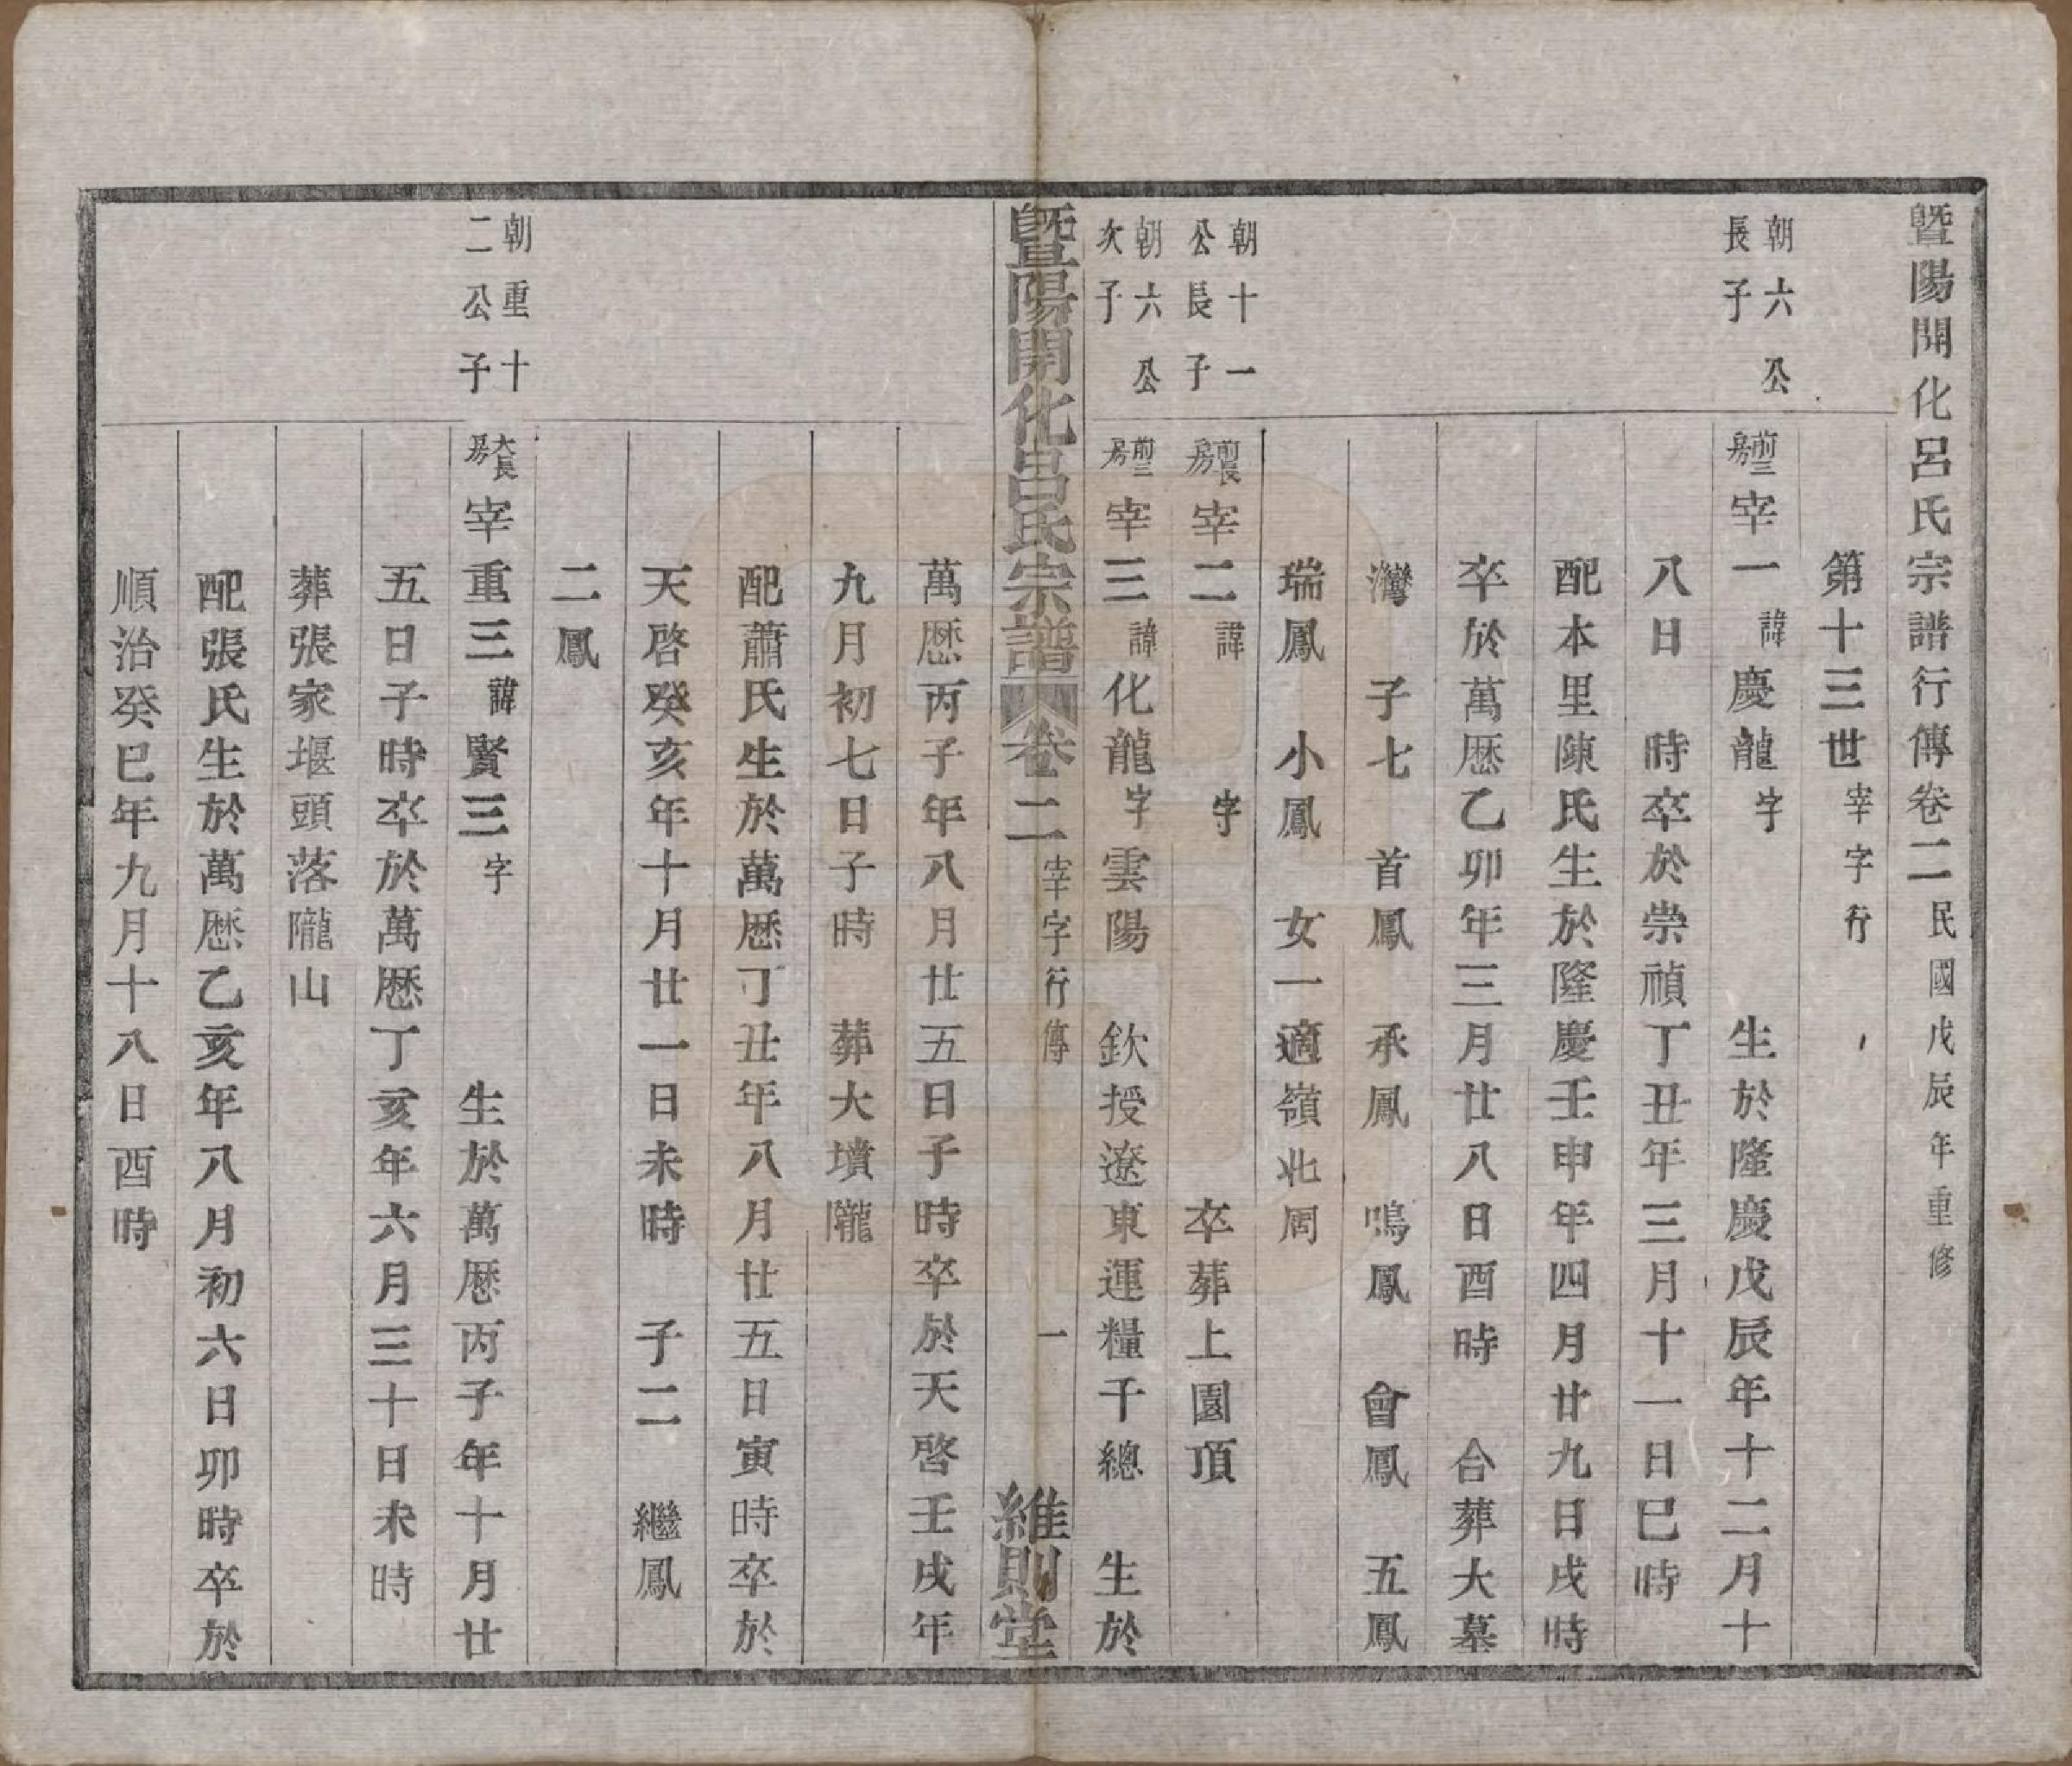 暨陽開化呂氏宗譜行傳卷二民國戊辰年重修
第十三世宰字行
朝六公長子
前三房宰一諱慶龍字 生於隆慶戊辰年十二月十
八日 時卒於崇禎丁丑年三月十一日巳時
配本里陳氏生於隆慶壬申年四月廿九日戌時
卒於萬歷乙卯年三月廿八日酉時 合葬大墓
灣 子七 首鳳 承鳳 鳴鳳 會鳳 五鳳
瑞鳳 小鳳 女一適嶺北周
朝十一公長子
前長房宰二諱 字 卒葬上園頂
朝六公次子
前三房宰三諱化龍字雲陽 欽授遼東運糧千總 生於
暨陽開化呂氏宗譜 卷二 宰字行傳 一 維則堂
萬歷丙子年八月廿五日子時卒於天啓壬戌年
九月初七日子時 葬大墳隴
配蕭氏生於萬歷丁丑年八月廿五日寅時卒於
天啓癸亥年十月廿一日未時 子二 繼鳳
二鳳
朝重十二公子
大長房宰重三諱賢三字 生於萬歷丙子年十月廿
五日子時卒於萬歷丁亥年六月三十日未時
葬張家堰頭落隴山
配張氏生於萬歷乙亥年八月初六日卯時卒於
順治癸巳年九月十八日酉時